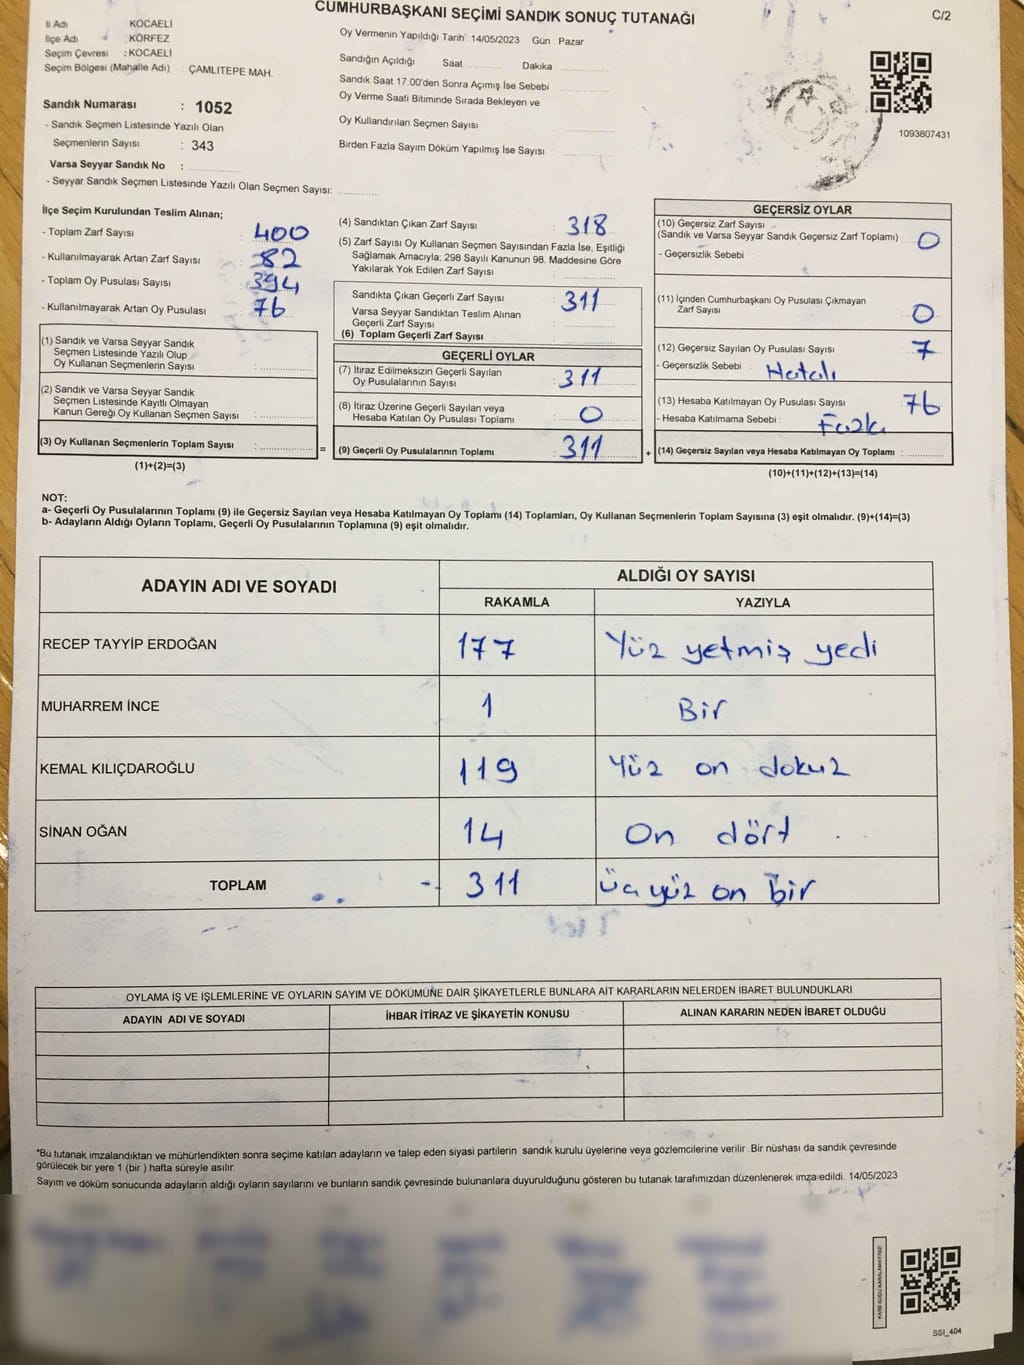 CUMHURBAŞKANI SEÇİMİ SANDIK SONUÇ TUTANAĞI
C/2
İl Adı : KOCAELİ
İlçe Adı : KÖRFEZ
Seçim Çevresi : KOCAELİ
Seçim Bölgesi (Mahalle Adı) : ÇAMLITEPE MAH.
Oy Vermenin Yapıldığı Tarih: 14/05/2023 Gün : Pazar
Sandığın Açıldığı Saat Dakika
Sandık Saat 17:00'den Sonra Açımış İse Sebebi
Oy Verme Saati Bitiminde Sırada Bekleyen ve
Oy Kullandırılan Seçmen Sayısı
Birden Fazla Sayım Döküm Yapılmış İse Sayısı
1093807431
Sandık Numarası : 1052
- Sandık Seçmen Listesinde Yazılı Olan
Seçmenlerin Sayısı : 343
Varsa Seyyar Sandık No :
- Seyyar Sandık Seçmen Listesinde Yazılı Olan Seçmen Sayısı:
İlçe Seçim Kurulundan Teslim Alınan;
- Toplam Zarf Sayısı : 400
- Kullanılmayarak Artan Zarf Sayısı : 82
- Toplam Oy Pusulası Sayısı : 394
- Kullanılmayarak Artan Oy Pusulası : 76
(1) Sandık ve Varsa Seyyar Sandık
Seçmen Listesinde Yazılı Olup
Oy Kullanan Seçmenlerin Sayısı :
(2) Sandık ve Varsa Seyyar Sandık
Seçmen Listesinde Kayıtlı Olmayan
Kanun Gereği Oy Kullanan Seçmen Sayısı :
(3) Oy Kullanan Seçmenlerin Toplam Sayısı :
(1)+(2)=(3)
=
(4) Sandıktan Çıkan Zarf Sayısı : 318
(5) Zarf Sayısı Oy Kullanan Seçmen Sayısından Fazla İse, Eşitliği
Sağlamak Amacıyla; 298 Sayılı Kanunun 98. Maddesine Göre
Yakılarak Yok Edilen Zarf Sayısı :
Sandıkta Çıkan Geçerli Zarf Sayısı : 311
Varsa Seyyar Sandıktan Teslim Alınan
Geçerli Zarf Sayısı :
(6) Toplam Geçerli Zarf Sayısı :
GEÇERLİ OYLAR
(7) İtiraz Edilmeksizin Geçerli Sayılan
Oy Pusulalarının Sayısı : 311
(8) İtiraz Üzerine Geçerli Sayılan veya
Hesaba Katılan Oy Pusulası Toplamı : 0
(9) Geçerli Oy Pusulalarının Toplamı : 311
+
GEÇERSİZ OYLAR
(10) Geçersiz Zarf Sayısı
(Sandık ve Varsa Seyyar Sandık Geçersiz Zarf Toplamı) : 0
- Geçersizlik Sebebi :
(11) İçinden Cumhurbaşkanı Oy Pusulası Çıkmayan
Zarf Sayısı : 0
(12) Geçersiz Sayılan Oy Pusulası Sayısı : 7
- Geçersizlik Sebebi : Hatalı
(13) Hesaba Katılmayan Oy Pusulası Sayısı : 76
- Hesaba Katılmama Sebebi : Fazla
(14) Geçersiz Sayılan veya Hesaba Katılmayan Oy Toplamı :
(10)+(11)+(12)+(13)=(14)
NOT:
a- Geçerli Oy Pusulalarının Toplamı (9) ile Geçersiz Sayılan veya Hesaba Katılmayan Oy Toplamı (14) Toplamları, Oy Kullanan Seçmenlerin Toplam Sayısına (3) eşit olmalıdır. (9)+(14)=(3)
b- Adayların Aldığı Oyların Toplamı, Geçerli Oy Pusulalarının Toplamına (9) eşit olmalıdır.
ADAYIN ADI VE SOYADI
ALDIĞI OY SAYISI
RAKAMLA YAZIYLA
RECEP TAYYİP ERDOĞAN 177 Yüz yetmiş yedi
MUHARREM İNCE 1 Bir
KEMAL KILIÇDAROĞLU 119 Yüz on dokuz
SİNAN OĞAN 14 On dört
TOPLAM 311 üç yüz on bir
OYLAMA İŞ VE İŞLEMLERİNE VE OYLARIN SAYIM VE DÖKÜMÜNE DAİR ŞİKAYETLERLE BUNLARA AİT KARARLARIN NELERDEN İBARET BULUNDUKLARI
ADAYIN ADI VE SOYADI İHBAR İTİRAZ VE ŞİKAYETİN KONUSU ALINAN KARARIN NEDEN İBARET OLDUĞU
*Bu tutanak imzalandıktan ve mühürlendikten sonra seçime katılan adayların ve talep eden siyasi partilerin sandık kurulu üyelerine veya gözlemcilerine verilir. Bir nüshası da sandık çevresinde
görülecek bir yere 1 (bir ) hafta süreyle asılır.
Sayım ve döküm sonucunda adayların aldığı oyların sayılarını ve bunların sandık çevresinde bulunanlara duyurulduğunu gösteren bu tutanak tarafımızdan düzenlenerek imza edildi. 14/05/2023
KARE KODU KARALAMAYINIZ!
SSI_404